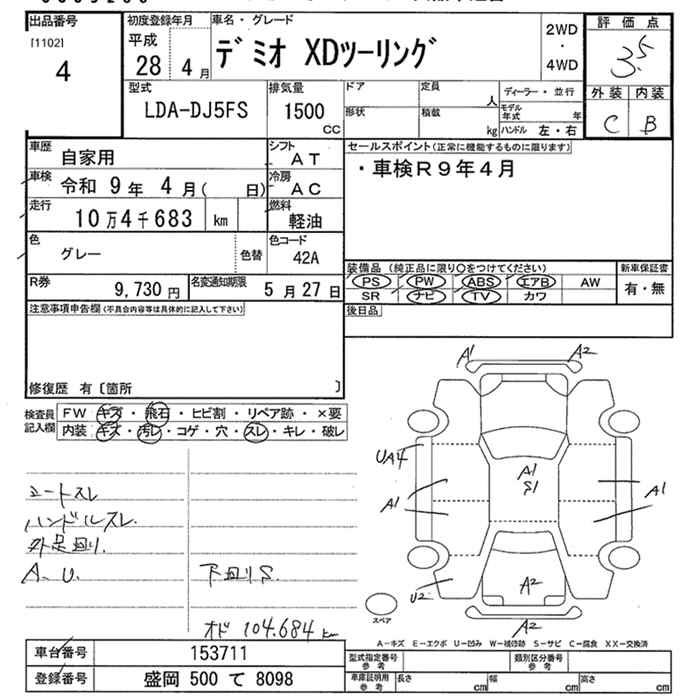 出品番号 初度登録年月 車名・グレード 2WD ・ 4WD 評価点
[1102] 4 平成 28 4月 デミオ XDツーリング 3.5
型式 排気量 ドア 定員 人 ディーラー・並行 外装 内装
LDA-DJ5FS 1500 CC 形状 積載 kg モデル年式 年 C B
ハンドル 左・右
車歴 自家用 シフト AT セールスポイント(正常に機能するものに限ります)
車検 令和 9年 4月( 日) 冷房 AC ・車検R9年4月
走行 10万4千683 km 燃料 軽油
色 グレー 色替 色コード 42A
装備品 (純正品に限り〇をつけてください) 新車保証書
PS PW ABS エアB AW 有・無
SR ナビ TV カワ
R券 9,730円 名変通知期限 5月27日
後日品
注意事項申告欄(不具合内容等は具体的に記入して下さい)
修復歴 有〔箇所 〕
検査員記入欄 FW キズ・飛石・ヒビ割・リペア跡・×要
内装 キズ・汚レ・コゲ・穴・スレ・キレ・破レ
A1 A2
UA4 A1 S1
A1 A1
シートスレ
ハンドルスレ
外足回り.
A. U. 下回りS.
U2 A2
スペア
A2
オド 104.684 km
A-キズ E-エクボ U-凹み W-補修跡 S-サビ C-腐食 XX-交換済
車台番号 153711 型式指定番号 参考 類別区分番号 参考
登録番号 盛岡 500 て 8098 車庫証明用 参考 長さ cm 幅 cm 高さ cm